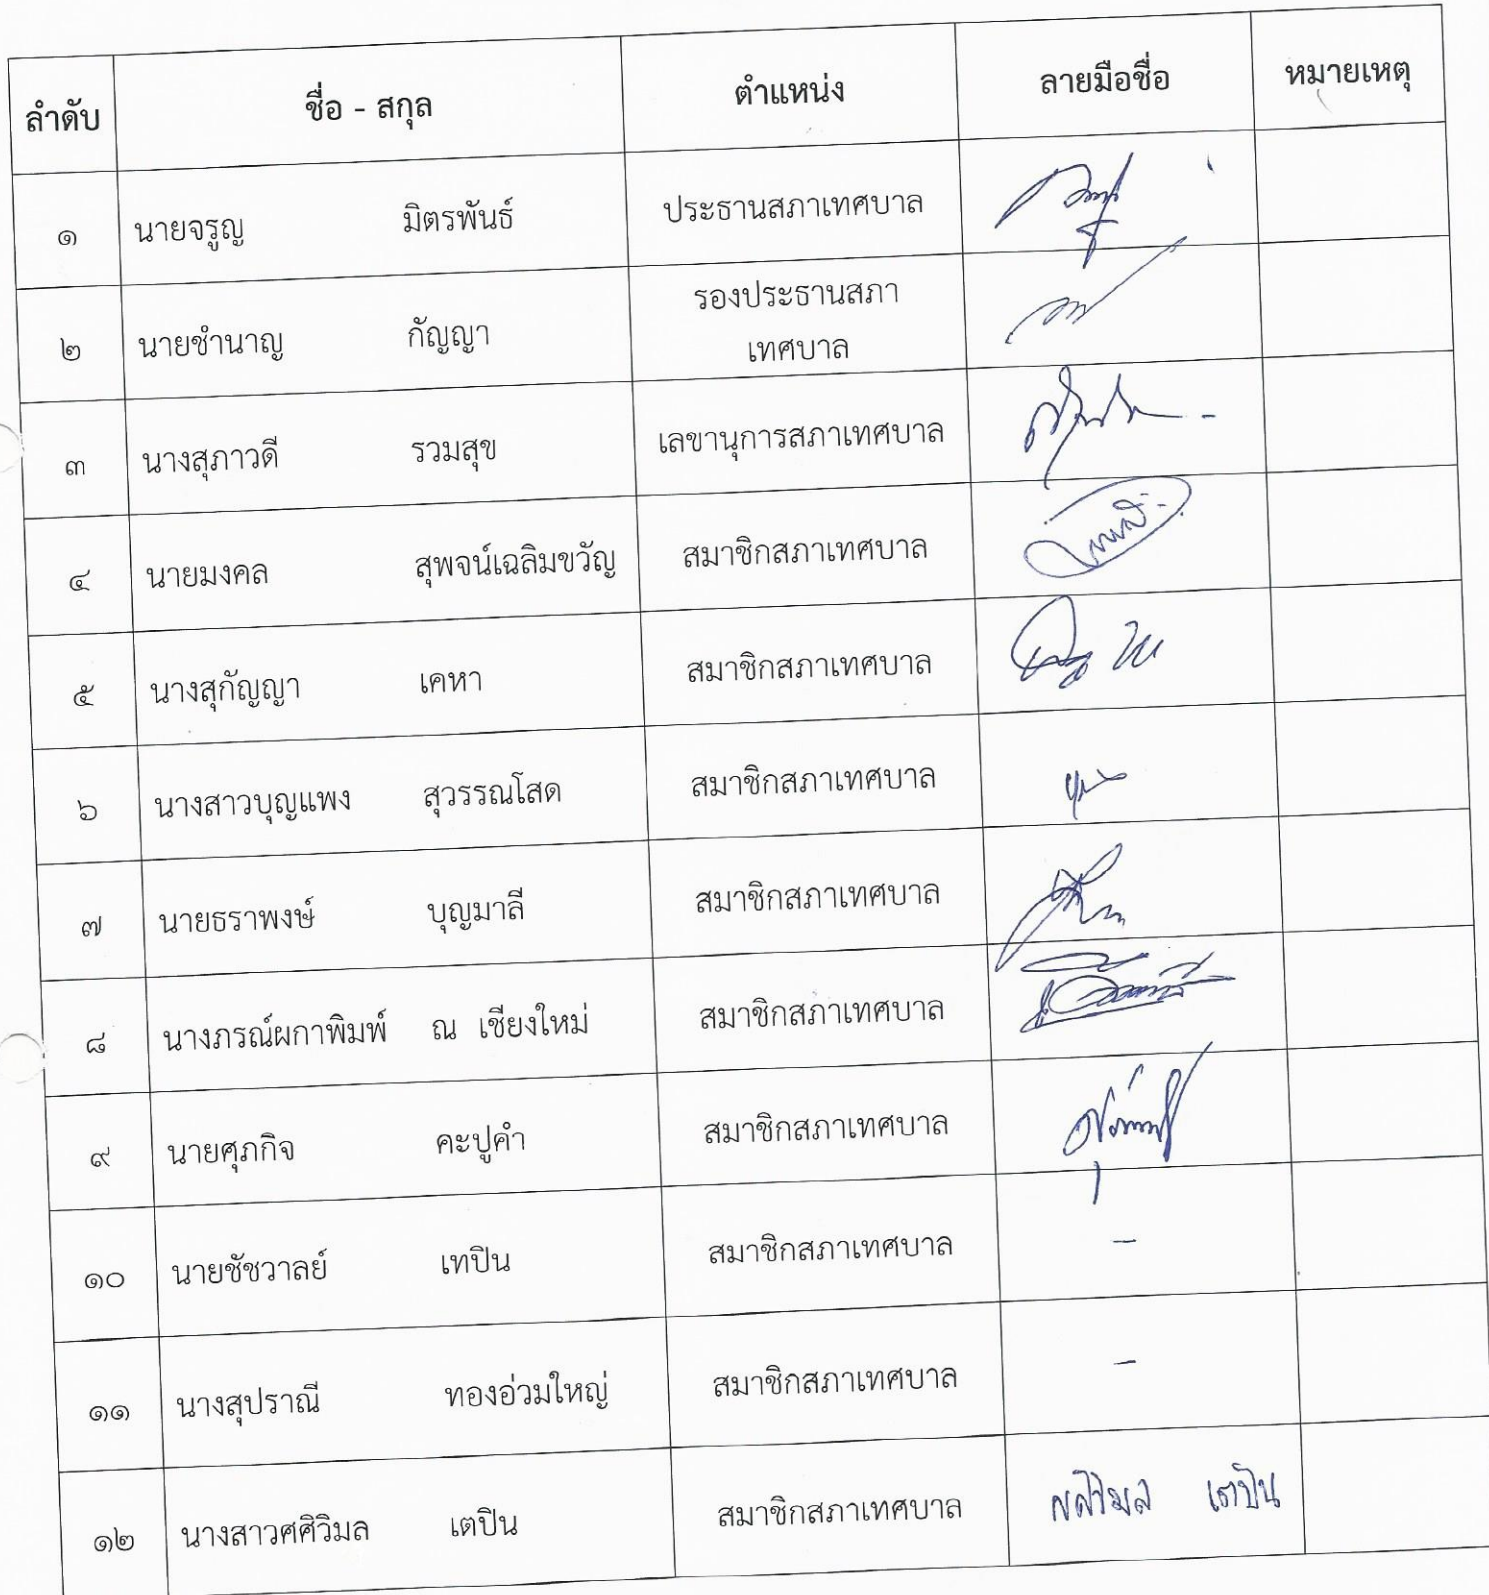 ลำดับ ชื่อ - สกุล ตำแหน่ง ลายมือชื่อ หมายเหตุ
๑ นายจรูญ มิตรพันธ์ ประธานสภาเทศบาล
๒ นายชำนาญ กัญญา รองประธานสภา
เทศบาล
๓ นางสุภาวดี รวมสุข เลขานุการสภาเทศบาล
๔ นายมงคล สุพจน์เฉลิมขวัญ สมาชิกสภาเทศบาล
๕ นางสุกัญญา เคหา สมาชิกสภาเทศบาล
๖ นางสาวบุญแพง สุวรรณโสด สมาชิกสภาเทศบาล
๗ นายธราพงษ์ บุญมาลี สมาชิกสภาเทศบาล
๘ นางภรณ์ผกาพิมพ์ ณ เชียงใหม่ สมาชิกสภาเทศบาล
๙ นายศุภกิจ คะปูคำ สมาชิกสภาเทศบาล
๑๐ นายชัชวาลย์ เทปิน สมาชิกสภาเทศบาล -
๑๑ นางสุปราณี ทองอ่วมใหญ่ สมาชิกสภาเทศบาล -
๑๒ นางสาวศศิวิมล เตปิน สมาชิกสภาเทศบาล ศศิวิมล เตปิน